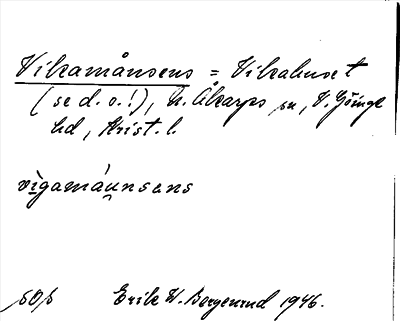 Vikamånsens = Vikahuset
(se d. o.!), N. Åkarps sn, V. Göinge
hd, Krist. l.
vìgamáunsens
Erik W. Bergenrud 1946.